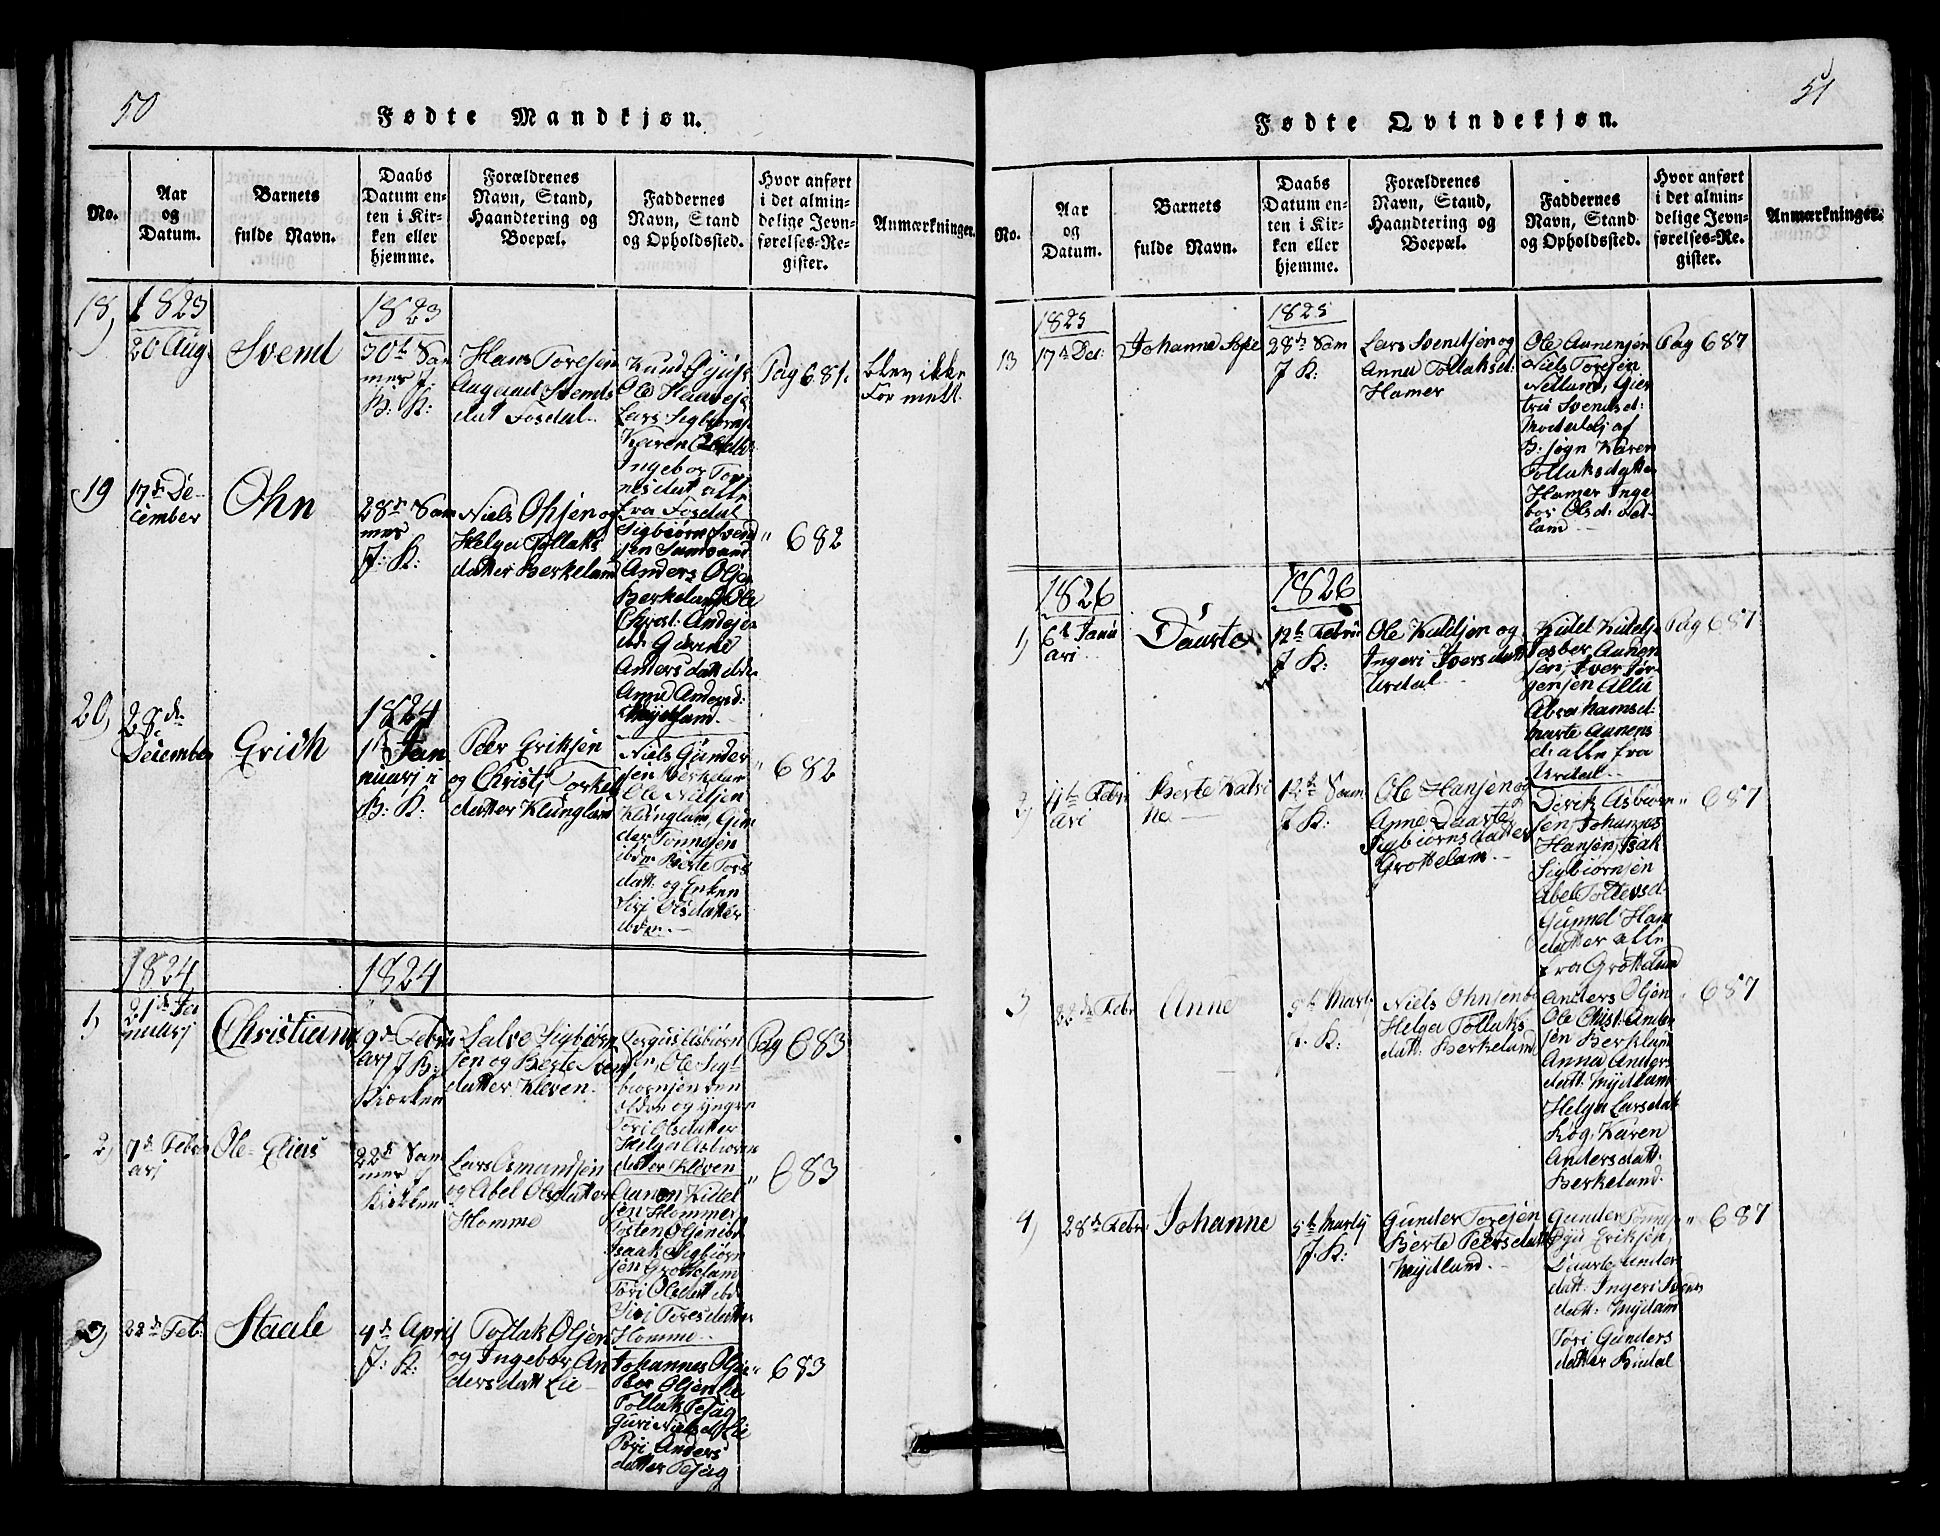 50
Fødte Mandkjøn.
No.
Aar
og
Datum.
Barnets
fulde Navn.
Daabs
Datum en-
ten i Kir-
ken eller
hjemme.
Forældrenes
Navn, Stand,
Haandtering og
Boepæl.
Faddernes
Navn, Stand
og Opholdssted.
Hvor anført
i det almin-
delige Jevn-
førelses-Re-
gister.
Anmærkninger.
18,
1823
20 Aug.
Svend
1823
30t Sam
mer J:
B: K:
Hans Toresen
Aagaad Svends
dat Fosdal
Ole Haavejs
Lars Sigbiørns
Karen
Ingebor Tor
nesdat alle
fra Fosdal
Pag 681.
blev ikke
For meldt.
19
17de De-
cember
Ohn
28de Sam
mer
J: K:
Niels Ohsen og
Helga Tollaks
datter Berkeland
Sigbiørn Svend
sen Sandvand
Anders Olsen
Berkeland, Ole
Christ: Andsen
ibd: Gurine
Anders datt ibd:
Anna Andersd:
Mydland.
" 682
20,
28de
December
Erich
1824
1t Jan
nuarj i
B: K:
Peer Eriksen
og Christi Torkel
datter Klunglan
Niels Gunder
sen Berkelan
Ole Nilsen
Klunglan, Gun
der Tonnesen
ibdm Birte Tors
datt: og Enken
Siri Olsdatter
ibdm.
" 682
1824
1824
1,
21de Ja
nuarj
Christiane
9de Febru
arj J K:
Kiørken
Salve Sigbiørn
sen og Berte Svend
datter Kleven.
Torgus Asbiørn
sen, Ole Sig-
biørnsen den
eldre og yngre
Tori Olsdatter
Helga Asbiørns
datter Kleven
Pag 683
2,
7de Febru
arj
Ole Elias
22de Sam
mer J
Kiørken
Lars Osmundsen
og Abel Olsdatter
Homme
Aanen Kittel
sen Hommer
Tosten Olsen ibd
Isaak Sigbiørn
sen Grottelam
Tori Olsdatt ibd
Siri Toresdatter
Homme
" 683
3,
22de Feb:
Staale
4de April
J: K:
Tollak Olsen
og Ingebor An
dersdatt Lie
Johannes Olsen
Peer Olsen Lie
Tollak Tesag
Guri Nielsd Lie
Anders
datter Tesag
" 683
51
Fødte Qvindekjøn.
No.
Aar
og
Datum.
Barnets
fulde Navn.
Daabs
Datum en-
ten i Kir-
ken eller
hjemme.
Forældrenes
Navn, Stand,
Haandtering og
Boepæl.
Faddernes
Navn, Stand
og Opholdssted.
Hvor anført
i det almin-
delige Jevn-
førelses-Re.
gister.
Anmærkninger.
13
1825
17de Det:
Johanne
1825
28de Sam
J K:
Lars Svendsen og
Anna Tollaksd:
Hamer
Ole Aanensen
Niels Toresen
Netland, Gier
tru Svendsd:
af
B: sogn Karen
Tollaksdatter
Hamer Inge
bor Olsd: Net-
lam
Pag 687
1826
1826
1,
6te Janu
ari
Daarte
12te Febru
J K:
Ole Kittelsen og
Ingeri Iversdatt
Urdal
Kittel Kittels:
Jesber Aanen
sen, Iver Jør
gensen Alla
Abrahamsd:
Marte Aanens
d: alle fra
Urdal
Pag 687
2,
11te Febru
ari
Berte Katri
ne
12te Sam
J K:
Ole Hansen og
Anne Daarte
Sigbiørnsdatter
Grottelam
Derik Asbiørn
sen, Johannes
Hansen, Isak
Sigbiørnsen
Abel Tollevsd
Gunnel Han
datter alle
fra Grottelam
" 687
3
22de Febr
Anne
5te Marty
J. K:
Niels Ohnsen
Helga Tollaks
datt: Berkeland
Anders Olsen
Ole Christ: Ander
sen Berkeland
Anna Anders
datt: Mydlam
Helga Larsdatt
Røg, Karen
Andersdatt:
Berkeland.
" 687
4,
28de Febr
Johanne
5te Marty
J. K:
Gunder Toresen
Berte Peersdatt
Mydland
Gunder Tonnes
Eriksen,
Daarte Gunder
datt: Ingeri Svens
datt: Mydam
Tori Gunders
datter Birdal
" 687